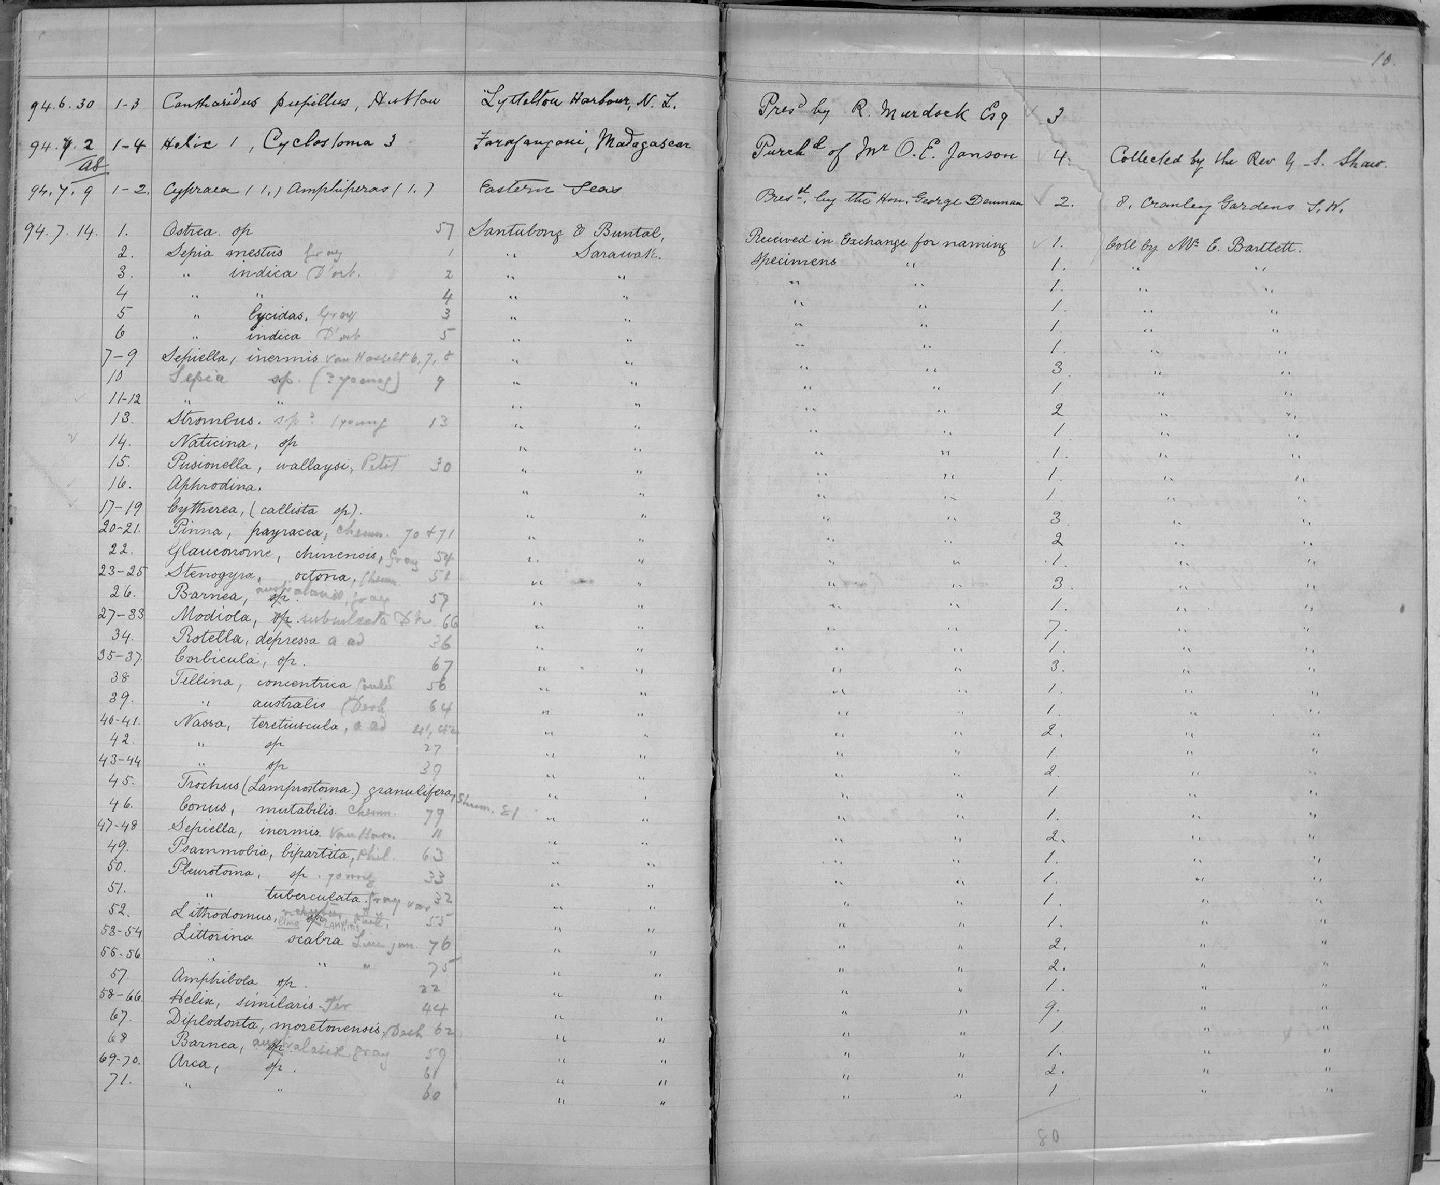 10.
94.6.30 1-3 Cantharidus pupillus, Hutton Lyttelton Harbour, N.Z. Pres^d by R. Murdock Esq 3
94.7.2 1-4 Helix 1, Cyclostoma 3 Farafangani, Madagascar Purch^d of Mr O.E. Janson 4. Collected by the Rev G. S. Shaw.
as
94.7.9 1-2. Cypraea (1.) Amphiperas (1.) Eastern Seas Pres^d. by the Hon. George Denman 2. 8. Cranley Gardens S.W.
94.7.14. 1. Ostrea sp 57 Santubong & Buntal, Received in Exchange for naming 1. Coll by Mr E. Bartlett.
2. Sepia mestus Gray 1 " Sarawak. specimens " 1. " "
3. " indica D'orb. 2 " " " " 1. " "
4 " " 4 " " " " 1. " "
5 " lycidas, Gray 3 " " " " 1. " "
6 " indica D'orb 5 " " " " 1. " "
7-9 Sepiella, inermis van Hasselt 6, 7, 8 " " " " 3. " "
10 Sepia sp. (? young) 9 " " " " 1 " "
11-12 " " " " " " 2 " "
13. Strombus. sp? young 13 " " " " 1 " "
14. Naticina, sp " " " " 1. " "
15. Pusionella, vallaysi, Petit 30 " " " " 1. " "
16. Aphrodina. " " " " 1. " "
17-19 Cytherea, (callista sp). " " " " 3. " "
20-21. Pinna, papracea, Chemn. 70 & 71 " " " " 2 " "
22. Glauconome, chinensis, Gray 54 " " " " 1. " "
23-25 Stenogyra, octona, Chemn 51 " " " " 3. " "
26. Barnea, sp. australasiae, Gray 59 " " " " 1. " "
27-33 Modiola, sp. subsulcata Dkr 66 " " " " 7. " "
34. Rotella, depressa a ad 36 " " " " 1. " "
35-37. Corbicula, sp. 67 " " " " 3. " "
38 Tellina, concentrica Gould 56 " " " " 1. " "
39. " australis Desh 64 " " " " 1. " "
40-41. Nassa, teretiuscula, a ad 41, 42 " " " " 2. " "
42. " sp 27 " " " " 1. " "
43-44 " sp 39 " " " " 2. " "
45. Trochus (Lamprostoma) granulifera, Chem. 81 " " " " 1 " "
46. Conus, mutabilis Chemn. 79 " " " " 1. " "
47-48 Sepiella, inermis. Van Hass. 11 " " " " 2. " "
49. Psammobia, bipartita, Phil. 63 " " " " 1. " "
50. Pleurotoma, sp. young 33 " " " " 1. " "
51. " tuberculata Gray var 32 " " " " 1. " "
52. Lithodomus, sp. 55 " " " " 1. " "
53-54 Littorina scabra Linn 76 " " " " 2. " "
55-56 " " " 75 " " " " 2. " "
57. Amphibola sp. 22 " " " " 1. " "
58-66. Helix, similaris. Fér 44 " " " " 9. " "
67. Diplodonta, moretonensis, Desh 62 " " " " 1 " "
68 Barnea, sp australasiae Gray 59 " " " " 1. " "
69-70. Arca, sp. 61 " " " " 2. " "
71. " " 60 " " " " 1 " "
80